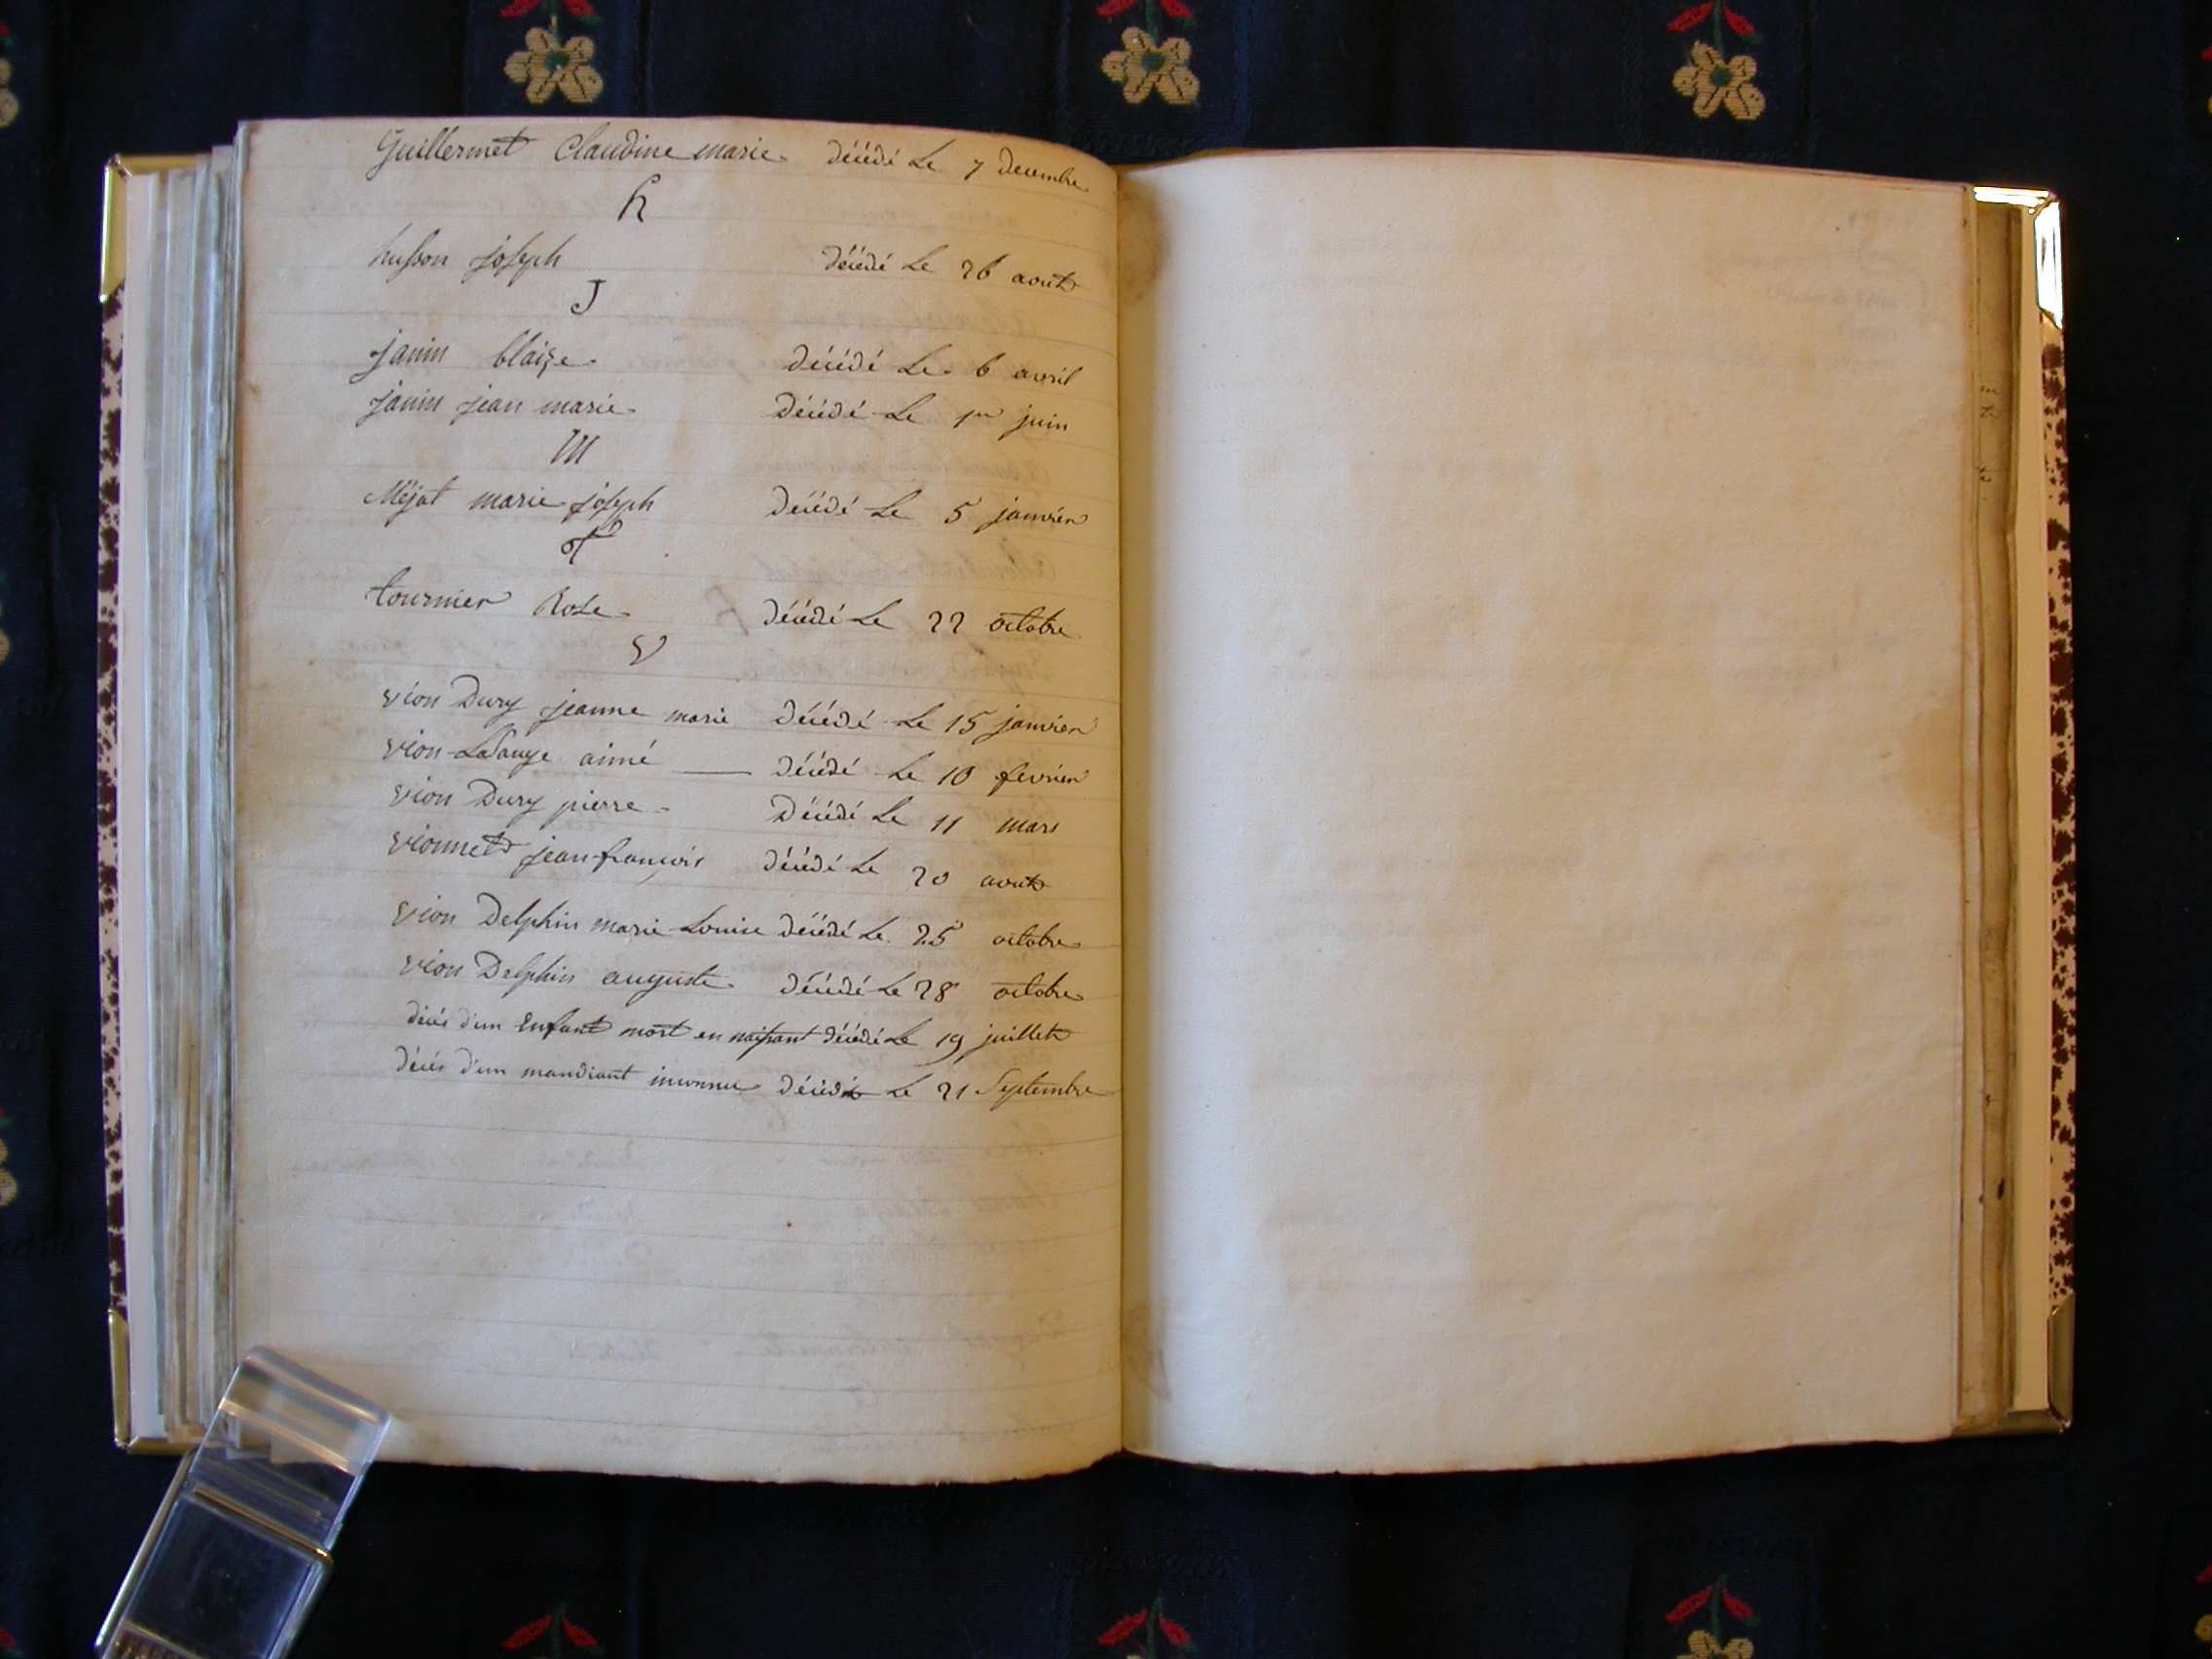 Guillermet Claudine marie décédé Le 7 decembre
h
husson joseph décédé Le 26 aout
J
janin blaize décédé Le 6 avril
janin jean marie décédé Le 1er juin
M
Méjat marie joseph décédé Le 5 janvier
T
tournier Rose décédé Le 22 octobre
V
vion Dury jeanne marie décédé Le 15 janvier
vion aimé décédé Le 10 fevrier
vion Dury pierre Décédé Le 11 mars
vionnet jean françois décédé Le 20 aout
vion Delphin marie Louise décédé Le 25 octobre
vion Delphin auguste décédé Le 28 octobre
décés d'un Enfant mort en naissant décédé Le 19 juillet
décés d'un mandiant inconnu décédé Le 21 Septembre